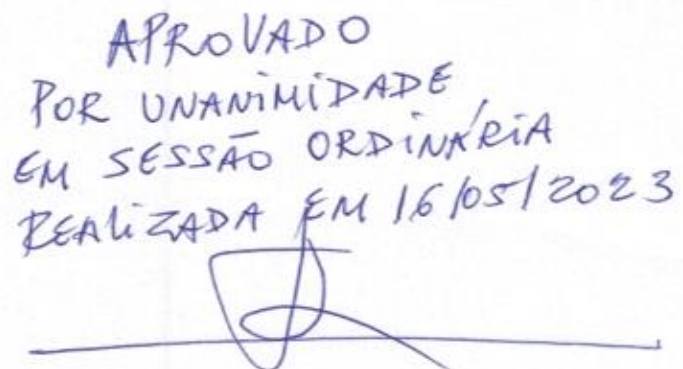 APROVADO
POR UNANIMIDADE
EM SESSÃO ORDINÁRIA
REALIZADA EM 16/05/2023